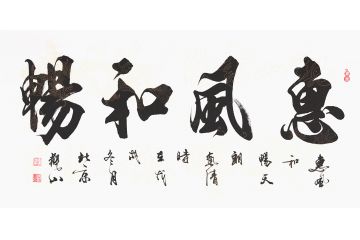 惠風和暢
惠風
和
暢天
朗
氣清
時
在戊
戌
冬月
北京